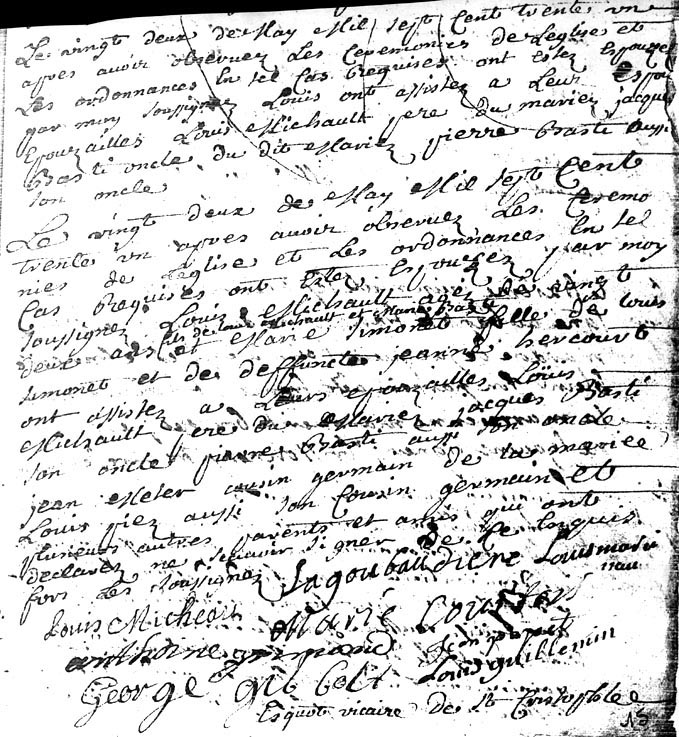 Le vingt deux de May Mil sept Cent trente un
apres avoir observez Les Ceremonies de Leglise et
Les ordonnances En tel Cas Requises ont Estez Espousez
par moy soussignez Louis ont assistez a Leur Espou
Epouzailles Louis Michault pere du mariez jacque
Basti oncle du dit Mariez pierre Basti aussi
son oncle
Le vingt deux de May Mil sept Cent
trente un apres avoir observez Les Ceremo
nies de Leglise et Les ordonnances En tel
Cas Requises ont Estez Espousez par moy
soussignez Louis Michault agez de vingt
fils de Louis Michault et Marie Basti
deux ans et Marie Simonet fille de Louis
simonet et de deffuncte jeanne hercourt
ont assistez a Leurs Epouzailles Louis
Michault pere du Mariez jacques Basti
son oncle pierre Basti aussi son oncle
jean Meter cousin germain de La mariee
Louis piez aussi son Cousin germain et
plusieurs autres parents et amis qui ont
declarez ne scavoir signer de Ce Enquis
fors Les soussignez Lagoubaudiere Louis mari
nau
Louis Micheau Marie Louis
anthoine grimaud
jean papuit
George Gib Colt Louis guillemin
Esquot vicaire de St Cristophle